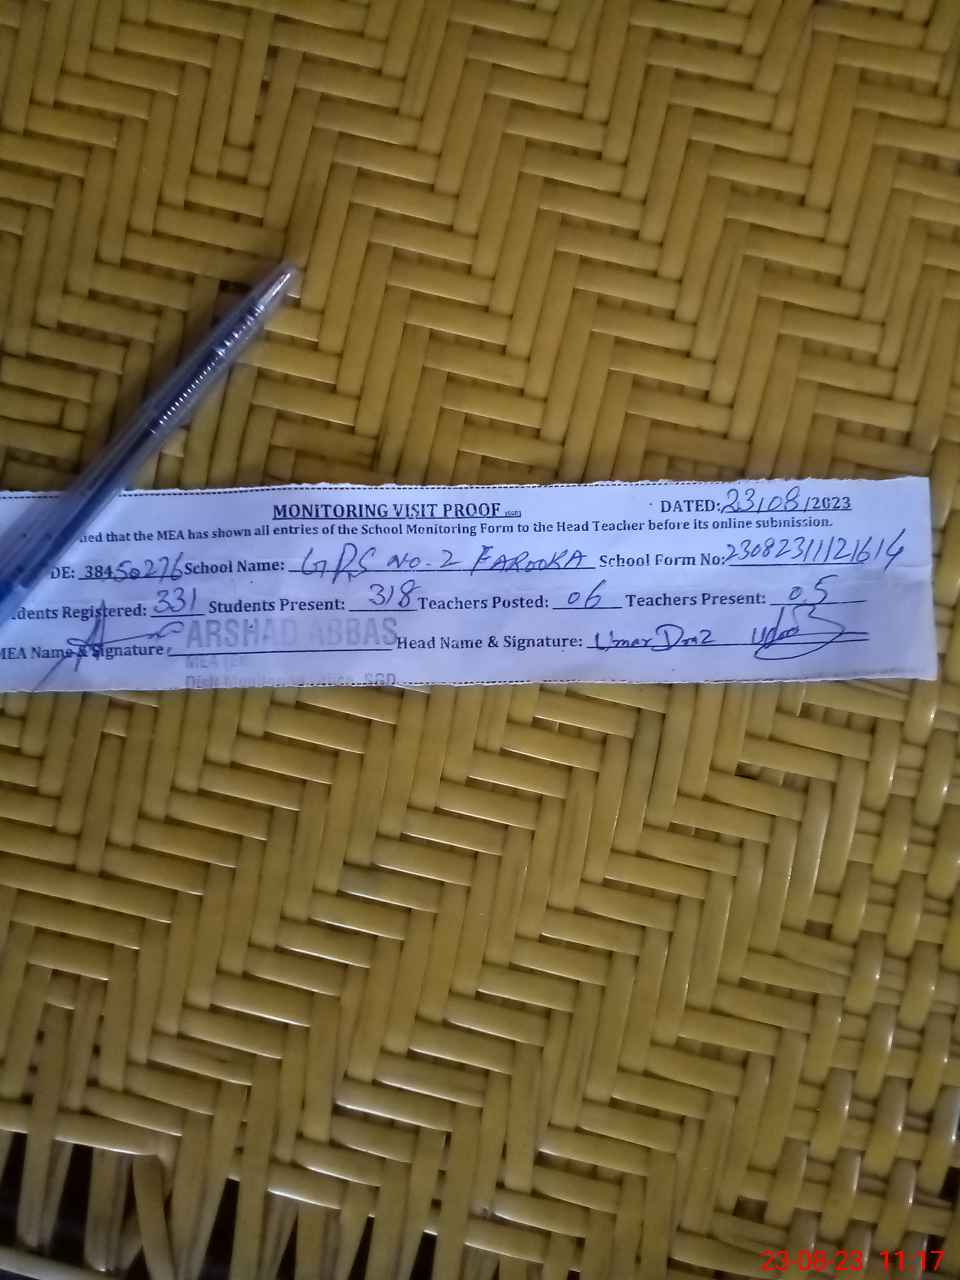 MONITORING VISIT PROOF DATED: 23/08/2023
that the MEA has shown all entries of the School Monitoring Form to the Head Teacher before its online submission.
DE: 38450276 School Name: GPS NO. 2 FAROOKA School Form No: 23082311121614
dents Registered: 331 Students Present: 318 Teachers Posted: 06 Teachers Present: 05
MEA Name & Signature ARSHAD ABBAS Head Name & Signature: Umar
SGD
23-08-23 11:17